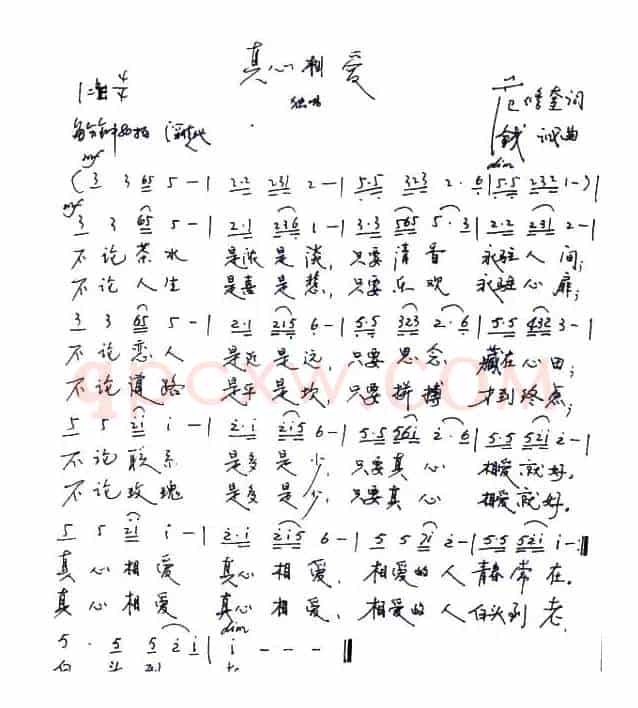 真心相爱
独唱
范修奎词
钱 诚曲
mf dim
( 3 3 65 5 - | 2·2 231 2 - | 5·5 323 2·6 | 5·5 232 1 - ) |
mf
3 3 65 5 - | 2·1 236 1 - | 3·3 565 5·3 | 2·2 231 2 - |
不论茶水 是浓是淡,只要清香 永驻人间;
不论人生 是喜是愁,只要乐观 永驻心扉;
3 3 65 5 - | 2·1 215 6 - | 5·5 323 2·6 | 5·5 432 3 - |
不论恋人 是近是远,只要思念 藏在心田;
不论道路 是平是坎,只要拼搏 才到终点;
5 5 2i i - | 2·i 2i5 6 - | 5·5 56i 2·6 | 5·5 52i 2 - |
不论联系 是多是少,只要真心 相爱就好。
不论玫瑰 是多是少,只要真心 相爱就好。
5 5 2i i - | 2·i 2i5 6 - | 5 5 7i 2 - | 5·5 52i i - :‖
真心相爱 真心相爱,相爱的人青春常在。
真心相爱 真心相爱,相爱的人白头到老,
dim
5 · 5 5 2i | i - - - ‖
qpcxw.COM